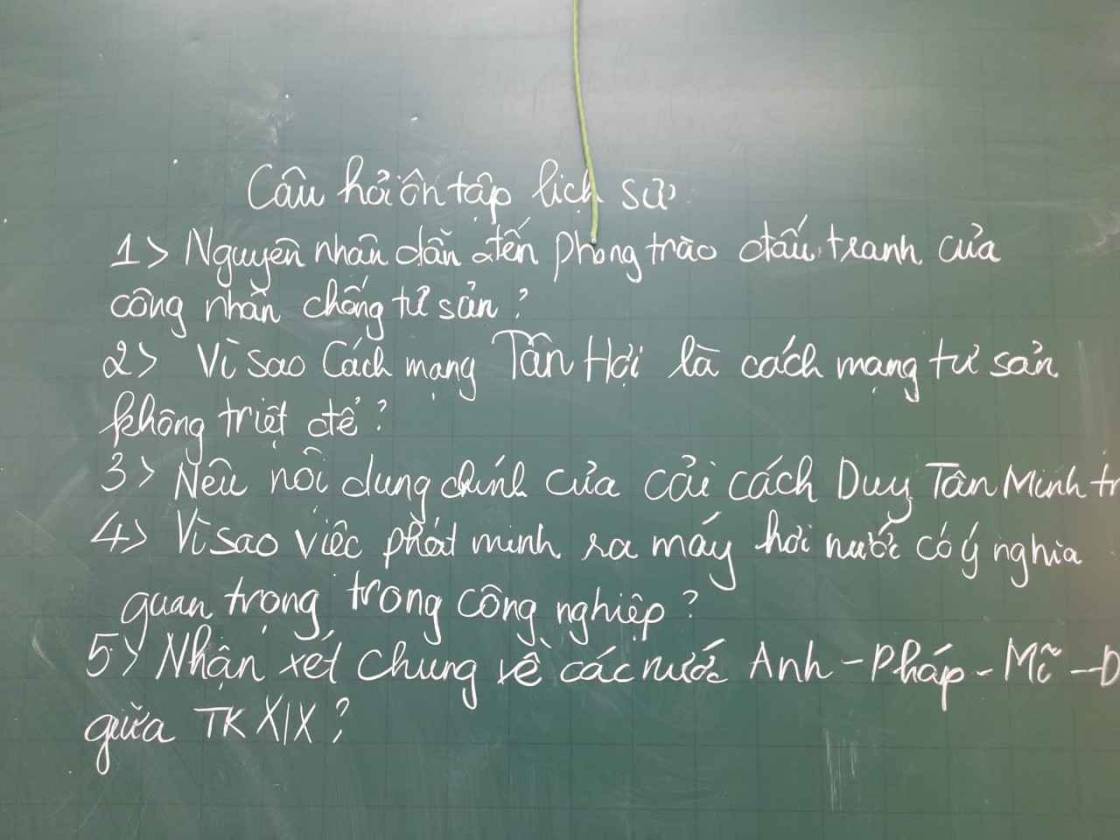 Câu hỏi ôn tập lịch sử:
1> Nguyên nhân dẫn đến phong trào đấu tranh của
công nhân chống tư sản?
2> Vì sao Cách mạng Tân Hợi là cách mạng tư sản
không triệt để?
3> Nêu nội dung chính của cải cách Duy Tân Minh tr
4> Vì sao việc phát minh ra máy hơi nước có ý nghĩa
quan trọng trong công nghiệp?
5> Nhận xét chung về các nước Anh - Pháp - Mĩ -
giữa TK XIX?